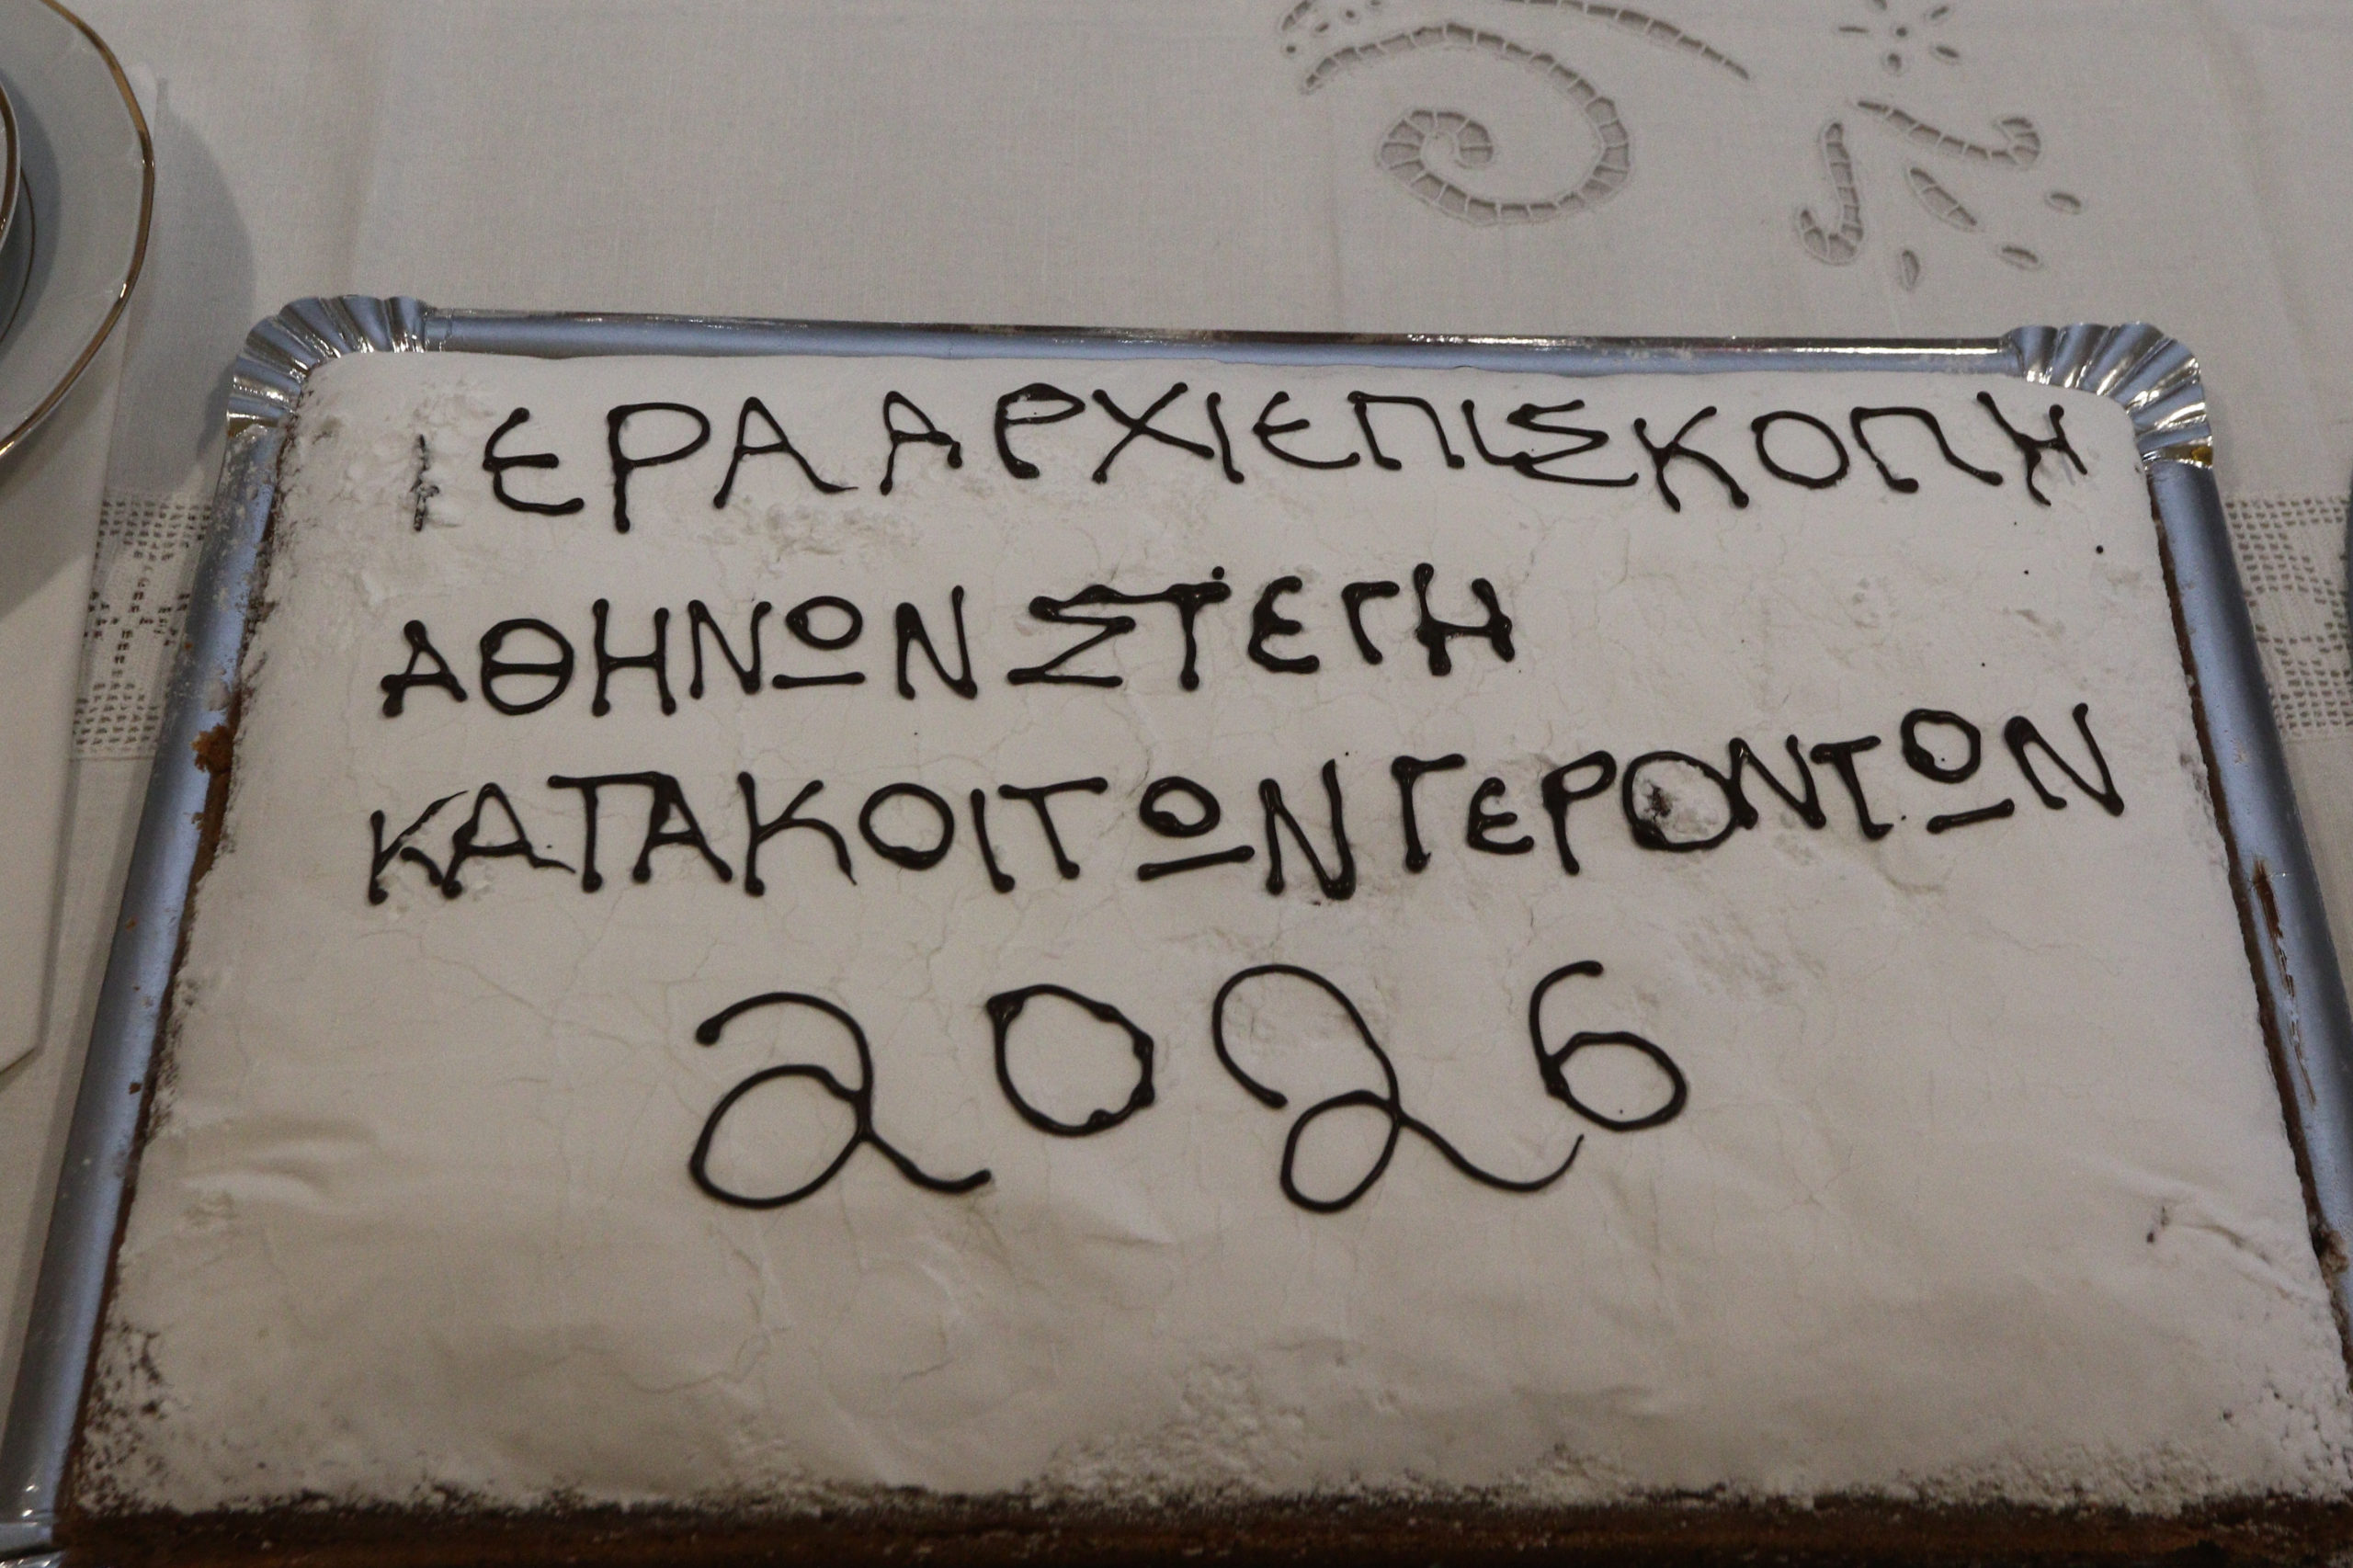 ΙΕΡΑ ΑΡΧΙΕΠΙΣΚΟΠΗ
ΑΘΗΝΩΝ ΣΤΕΓΗ
ΚΑΤΑΚΟΙΤΩΝ ΓΕΡΟΝΤΩΝ
2026